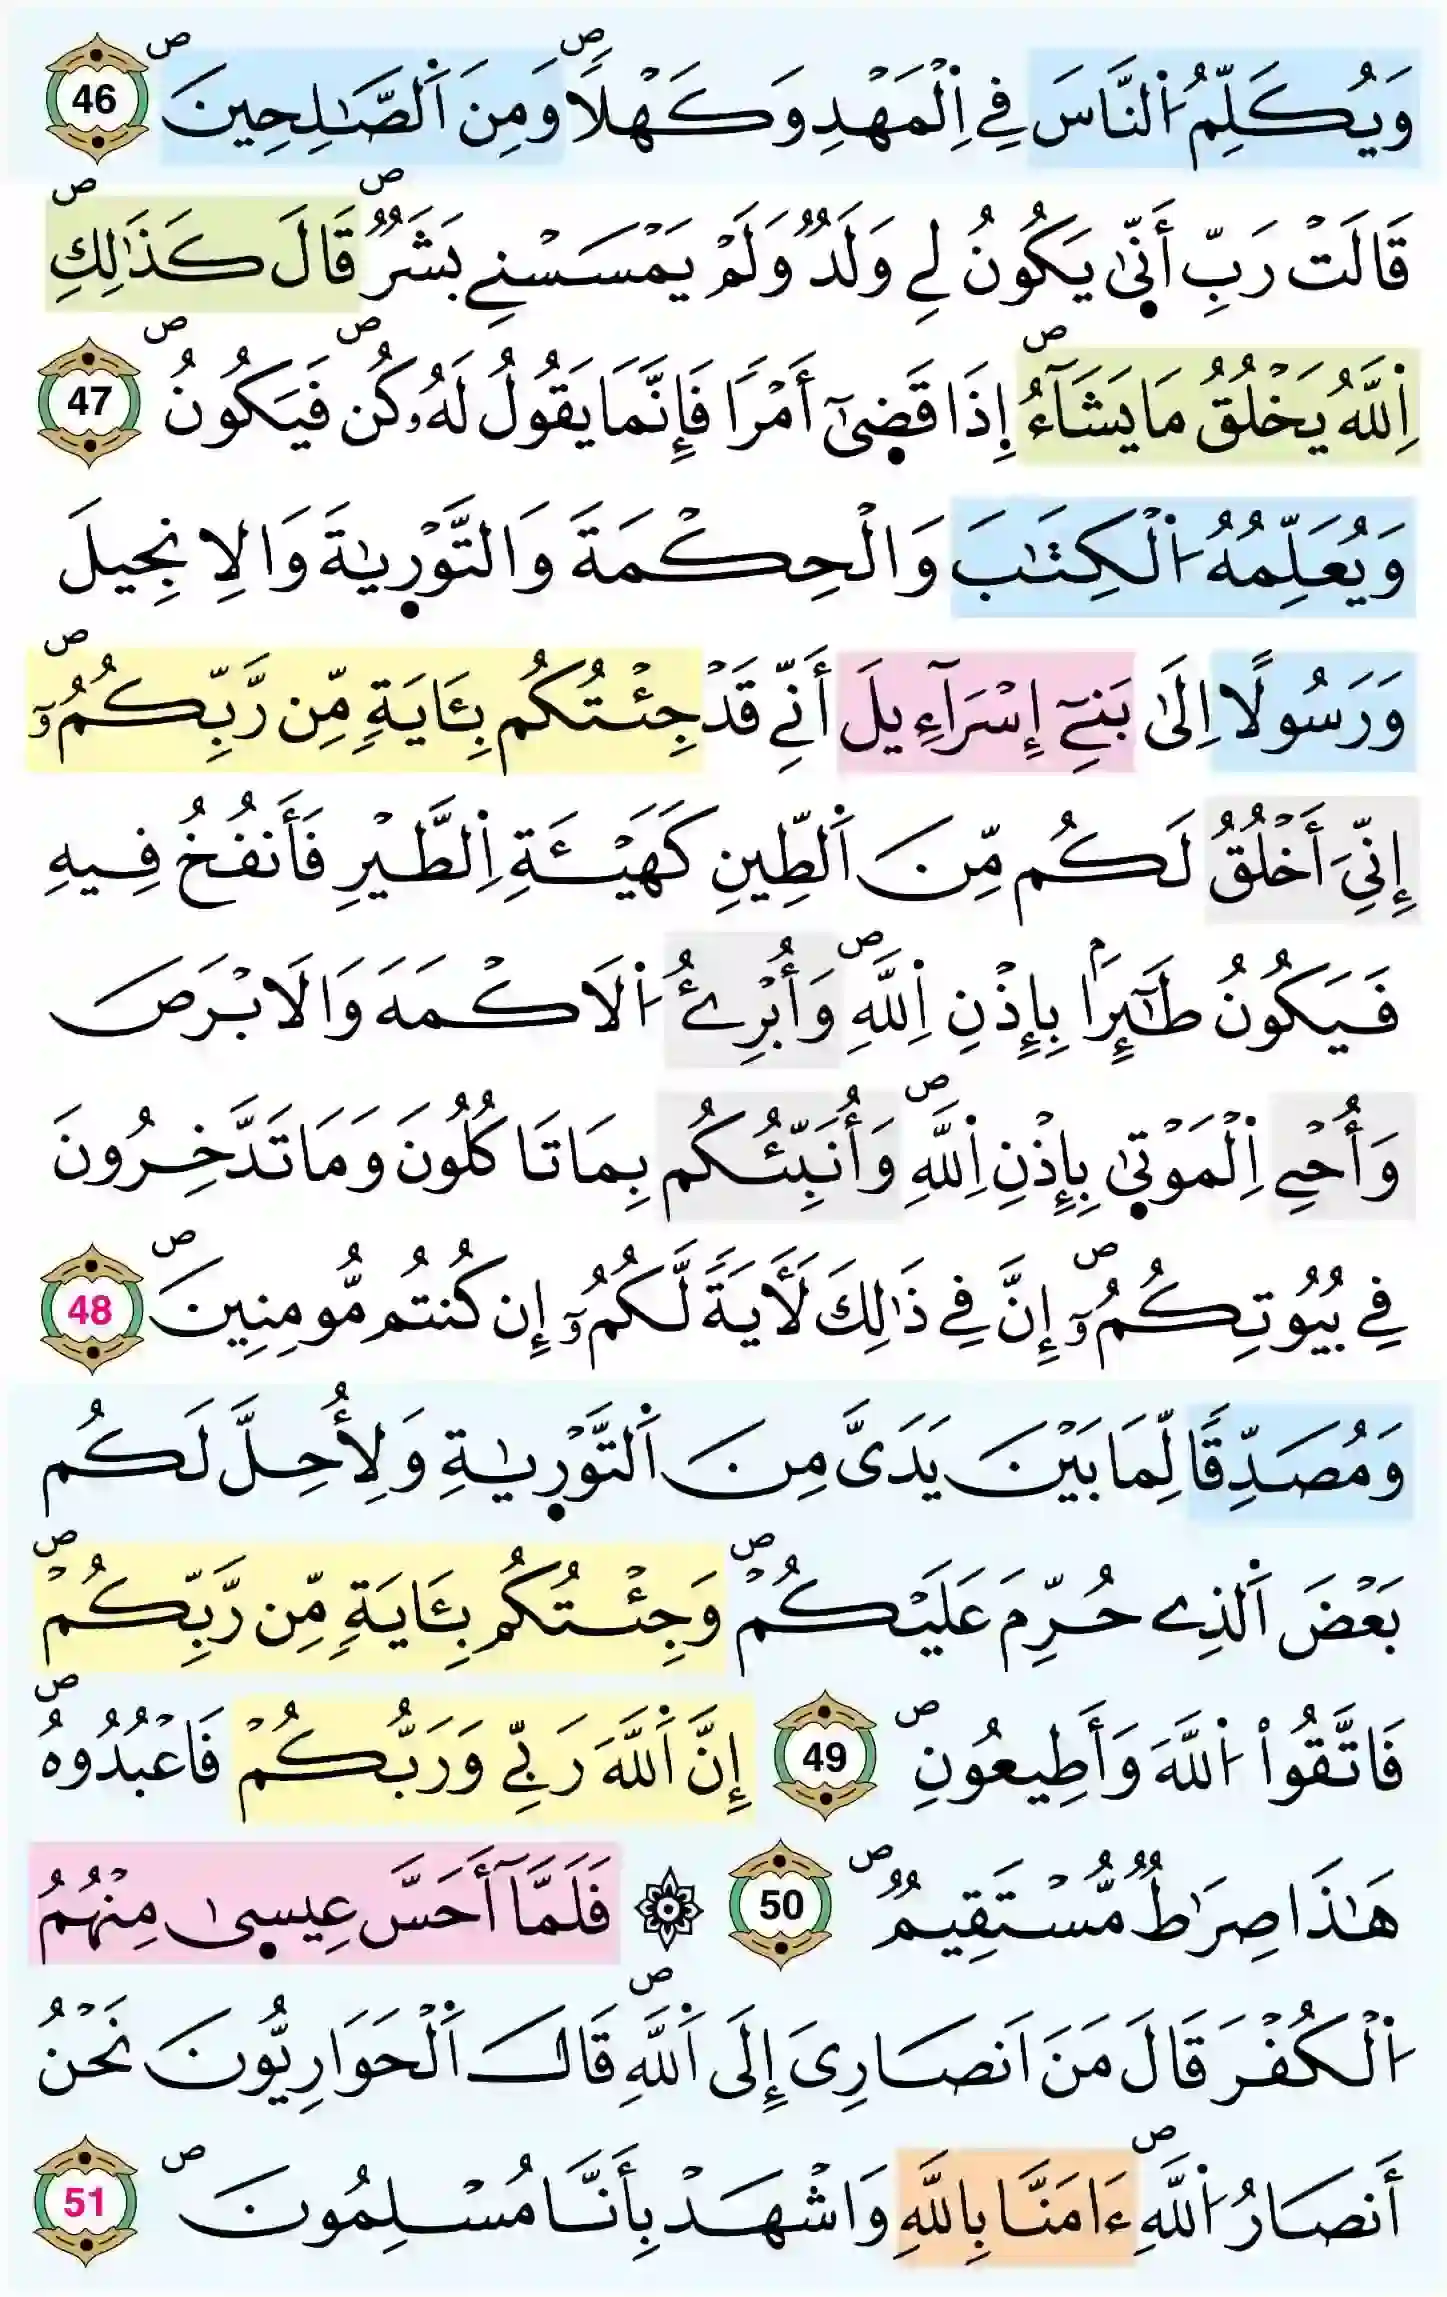 وَيُكَلِّمُ اُ۬لنَّاسَ فِے اِ۬لْمَهْدِ وَكَهْلاٗ ۖ وَمِنَ اَ۬لصَّٰلِحِينَۖ 46
قَالَتْ رَبِّ أَنّ۪يٰ يَكُونُ لِے وَلَدٞ وَلَمْ يَمْسَسْنِے بَشَرٞۖ قَالَ كَذَٰلِكِۖ
اِ۬للَّهُ يَخْلُقُ مَا يَشَآءُۖ إِذَا قَض۪يٰٓ أَمْراٗ فَإِنَّمَا يَقُولُ لَهُۥ كُنۖ فَيَكُونُۖ 47
وَيُعَلِّمُهُ اُ۬لْكِتَٰبَ وَالْحِكْمَةَ وَالتَّوْر۪يٰةَ وَالِانجِيلَ
وَرَسُولاً اِلَيٰ بَنِےٓ إِسْرَآءِيلَ أَنِّے قَدْ جِئْتُكُم بِـَٔايَةٖ مِّن رَّبِّكُمُۥٓۖ
إِنِّيَ أَخْلُقُ لَكُم مِّنَ اَ۬لطِّينِ كَهَيْـَٔةِ اِ۬لطَّيْرِ فَأَنفُخُ فِيهِ
فَيَكُونُ طَٰٓئِراَۢ بِإِذْنِ اِ۬للَّهِۖ وَأُبْرِۓُ اُ۬لَاكْمَهَ وَالَابْرَصَ
وَأُحْيِ اِ۬لْمَوْت۪يٰ بِإِذْنِ اِ۬للَّهِۖ وَأُنَبِّئُكُم بِمَا تَاكُلُونَ وَمَا تَدَّخِرُونَ
فِے بُيُوتِكُمُۥٓۖ إِنَّ فِے ذَٰلِكَ لَأٓيَةٗ لَّكُمُۥٓ إِن كُنتُم مُّومِنِينَۖ 48
وَمُصَدِّقاٗ لِّمَا بَيْنَ يَدَيَّ مِنَ اَ۬لتَّوْر۪يٰةِ وَلِأُحِلَّ لَكُم
بَعْضَ اَ۬لذِے حُرِّمَ عَلَيْكُمْۖ وَجِئْتُكُم بِـَٔايَةٖ مِّن رَّبِّكُمْۖ
فَاتَّقُواْ اُ۬للَّهَ وَأَطِيعُونِۖ 49 إِنَّ اَ۬للَّهَ رَبِّے وَرَبُّكُمْ فَاعْبُدُوهُۖ
هَٰذَا صِرَٰطٞ مُّسْتَقِيمٞۖ 50 ۞ فَلَمَّآ أَحَسَّ عِيس۪يٰ مِنْهُمُ
اُ۬لْكُفْرَ قَالَ مَنَ اَنصَارِيَ إِلَي اَ۬للَّهِۖ قَالَ اَ۬لْحَوَارِيُّونَ نَحْنُ
أَنصَارُ اُ۬للَّهِۖ ءَامَنَّا بِاللَّهِ وَاشْهَدْ بِأَنَّا مُسْلِمُونَۖ 51